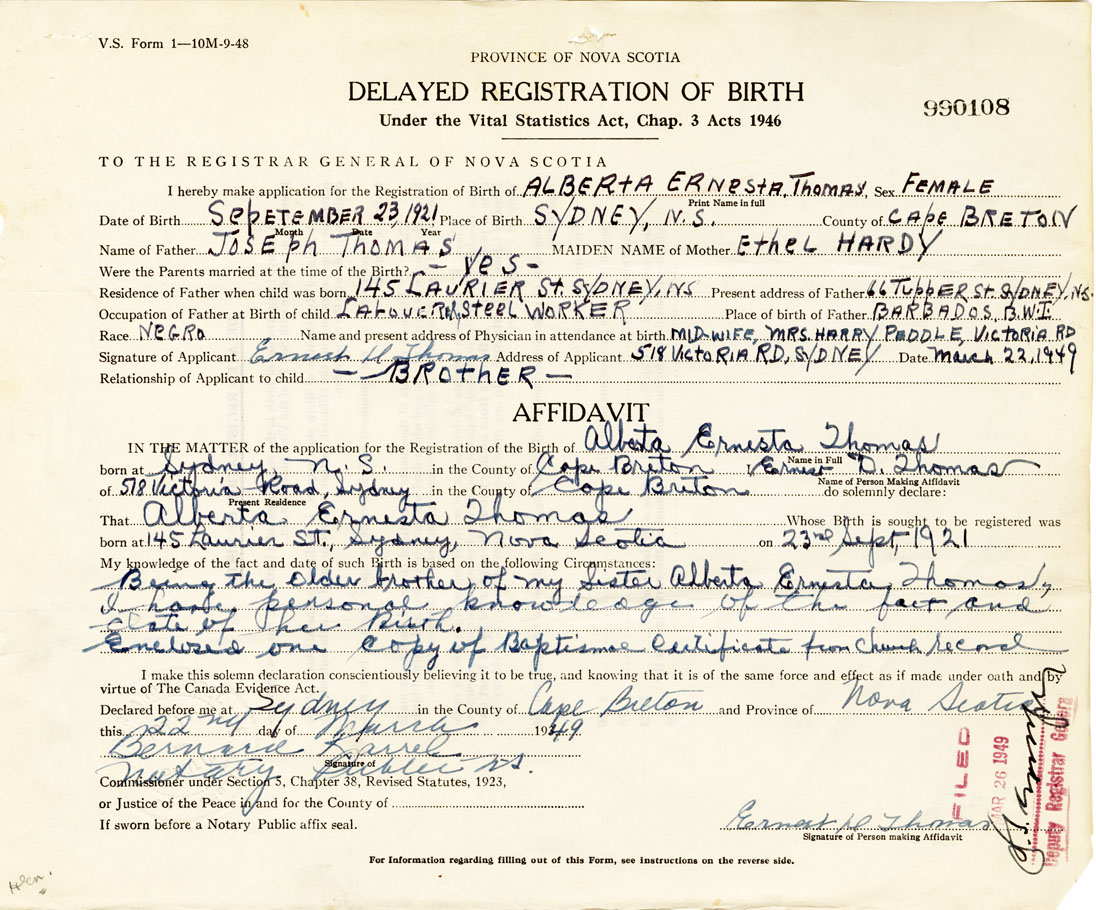 V.S. Form 1—10M-9-48
PROVINCE OF NOVA SCOTIA
DELAYED REGISTRATION OF BIRTH
990108
Under the Vital Statistics Act, Chap. 3 Acts 1946
TO THE REGISTRAR GENERAL OF NOVA SCOTIA
I hereby make application for the Registration of Birth of ALBERTA ERNESTA THOMAS, Sex FEMALE
Print Name in full
Date of Birth SEPETEMBER 23, 1921 Place of Birth SYDNEY, N.S. County of CAPE BRETON
Month Date Year
Name of Father JOSEPH THOMAS MAIDEN NAME of Mother ETHEL HARDY
Were the Parents married at the time of the Birth? - YES -
Residence of Father when child was born 145 LAURIER ST. SYDNEY, NS Present address of Father 66 TUPPER ST. SYDNEY, N.S.
Occupation of Father at Birth of child STEEL WORKER Place of Birth of Father BARBADOS, B.W.I.
Race NEGRO Name and present address of Physician in attendance at birth MID-WIFE, MRS. HARRY PEDDLE, VICTORIA RD
Signature of Applicant Ernest D Thomas Address of Applicant 518 VICTORIA RD, SYDNEY Date March 22, 1949
Relationship of Applicant to child — BROTHER —
AFFIDAVIT
IN THE MATTER of the application for the Registration of the Birth of Alberta Ernesta Thomas
Name in Full
born at Sydney, N.S. in the County of Cape Breton Ernest D. Thomas
Name of Person Making Affidavit
of 518 Victoria Road, Sydney in the County of Cape Breton do solemnly declare:
Present Residence
That Alberta Ernesta Thomas Whose Birth is sought to be registered was
born at 145 Laurier St., Sydney, Nova Scotia on 23rd Sept, 1921
My knowledge of the fact and date of such Birth is based on the following Circumstances:
Being the older brother of my Sister Alberta Ernesta Thomas,
I have personal knowledge of the fact and
date of her Birth.
Enclosed one Copy of Baptismal Certificate from Church record
I make this solemn declaration conscientiously believing it to be true, and knowing that it is of the same force and effect as if made under oath and by
virtue of The Canada Evidence Act.
Declared before me at Sydney in the County of Cape Breton and Province of Nova Scotia
this 22nd day of March 1949
Bernard
Signature of
Notary Public N.S.
Commissioner under Section 5, Chapter 38, Revised Statutes, 1923,
or Justice of the Peace in and for the County of
If sworn before a Notary Public affix seal.
Ernest D Thomas
Signature of Person making Affidavit
FILED
MAR 26 1949
Deputy Registrar General
For Information regarding filling out of this Form, see instructions on the reverse side.